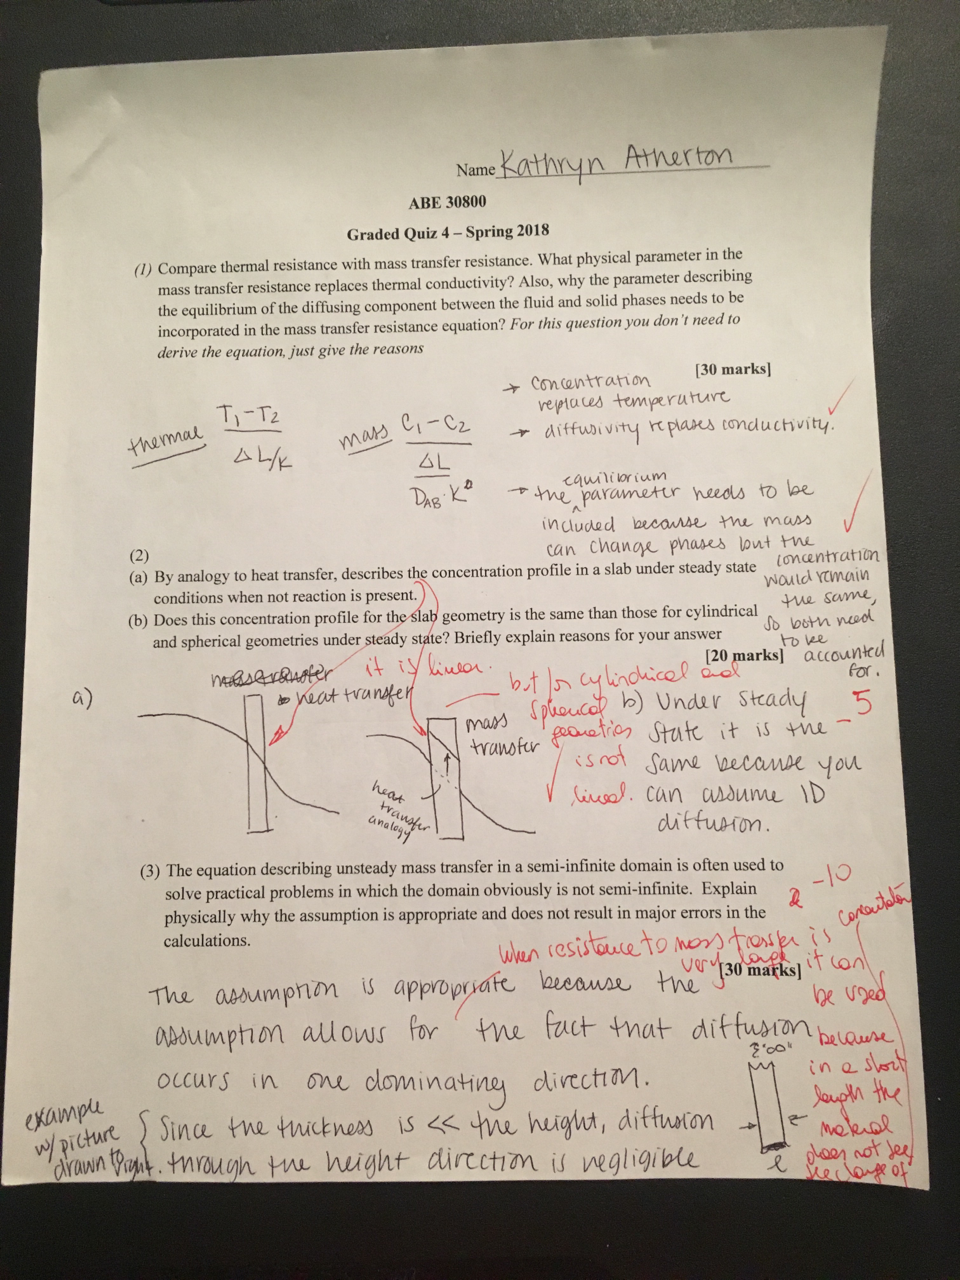 Name Kathryn Atherton
ABE 30800
Graded Quiz 4 – Spring 2018
(1) Compare thermal resistance with mass transfer resistance. What physical parameter in the
mass transfer resistance replaces thermal conductivity? Also, why the parameter describing
the equilibrium of the diffusing component between the fluid and solid phases needs to be
incorporated in the mass transfer resistance equation? For this question you don't need to
derive the equation, just give the reasons
[30 marks]
thermal T1-T2
ΔL/K
mass C1-C2
ΔL
DAB·K
→ concentration
replaces temperature
→ diffusivity replases conductivity.
equilibrium
→ the ^ parameter needs to be
included because the mass
can change phases but the
concentration
would remain
the same,
so both need
to be
accounted
for.
(2)
(a) By analogy to heat transfer, describes the concentration profile in a slab under steady state
conditions when not reaction is present.
(b) Does this concentration profile for the slab geometry is the same than those for cylindrical
and spherical geometries under steady state? Briefly explain reasons for your answer
[20 marks]
a)
mass transfer
heat transfer
mass
transfer
heat
transfer
analogy
it is linear.
but for cylindrical and
spherical
geometries
is not
lineal.
b) Under steady
state it is the
same because you
can assume 1D
diffusion.
-5
(3) The equation describing unsteady mass transfer in a semi-infinite domain is often used to
solve practical problems in which the domain obviously is not semi-infinite. Explain
physically why the assumption is appropriate and does not result in major errors in the
calculations.
[30 marks]
-10
When resistance to mass transfer is
very large it can
be used
because
in a short
length the
material
does not see
the change of
concentration
The assumption is appropriate because the
assumption allows for the fact that diffusion
occurs in one dominating direction.
example
w/ picture
drawn to right.
{ Since the thickness is << the height, diffusion
through the height direction is negligible
"∞"